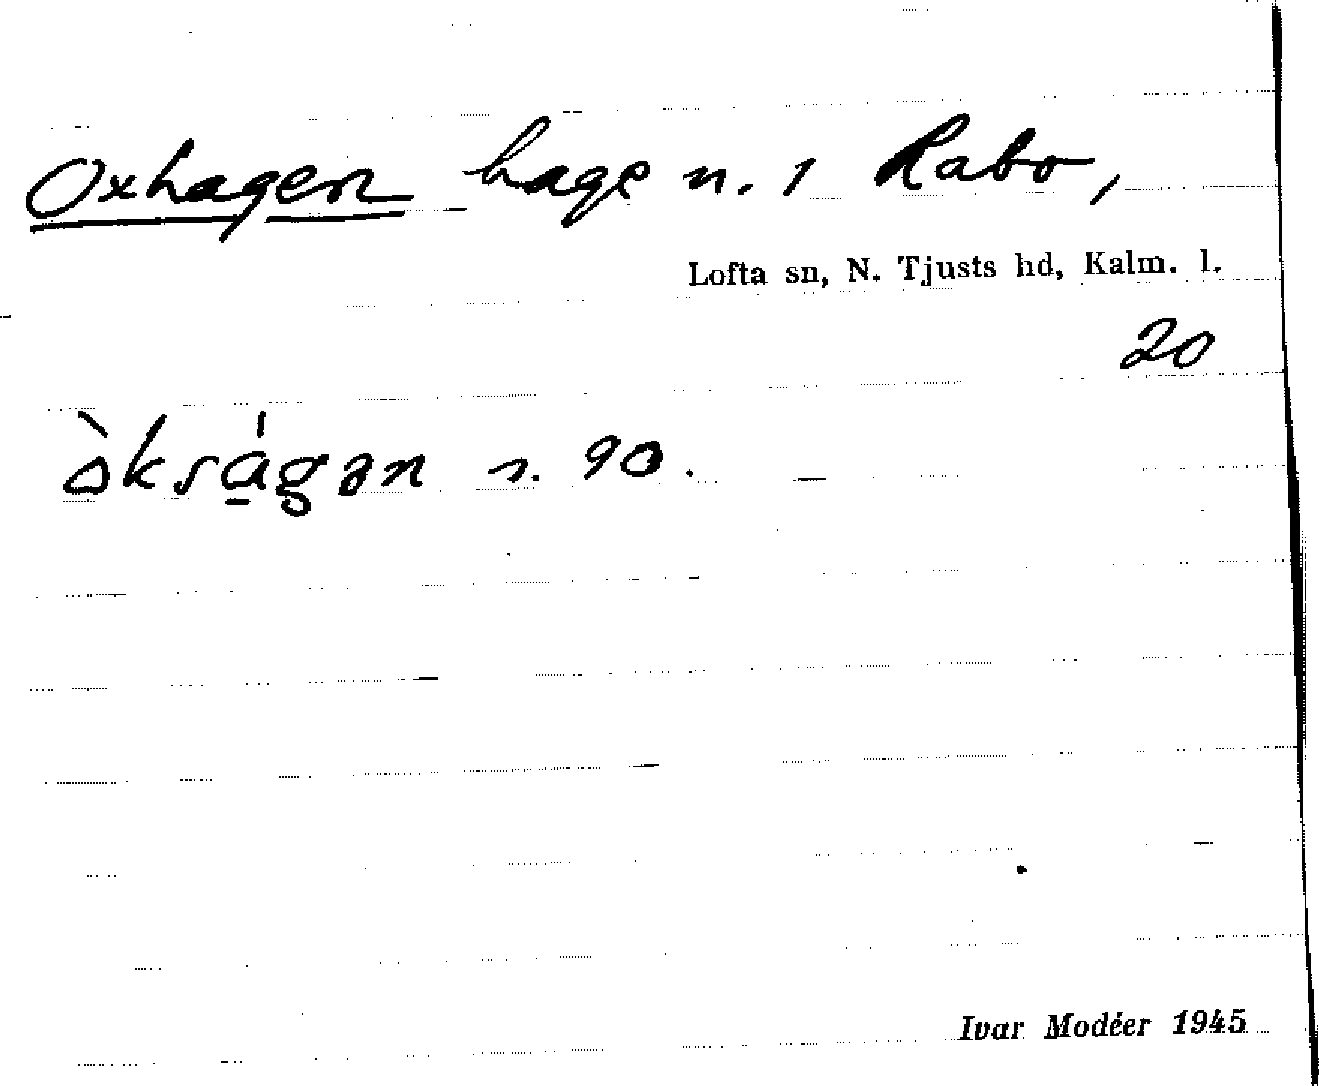 Oxhagen hage n. 1 Rabo,
Lofta sn, N. Tjusts hd, Kalm. l.
20
òksa̱̍gən n. 90.
Ivar Modéer 1945